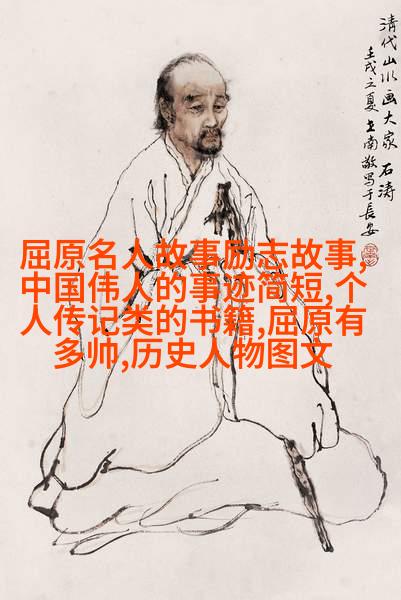 清代山水画大家 石涛
壬戌之夏 王南敬写于長安
屈原名人故事励志故事,
中国伟人的事迹简短,个
人传记类的书籍,屈原有
多帅,历史人物图文